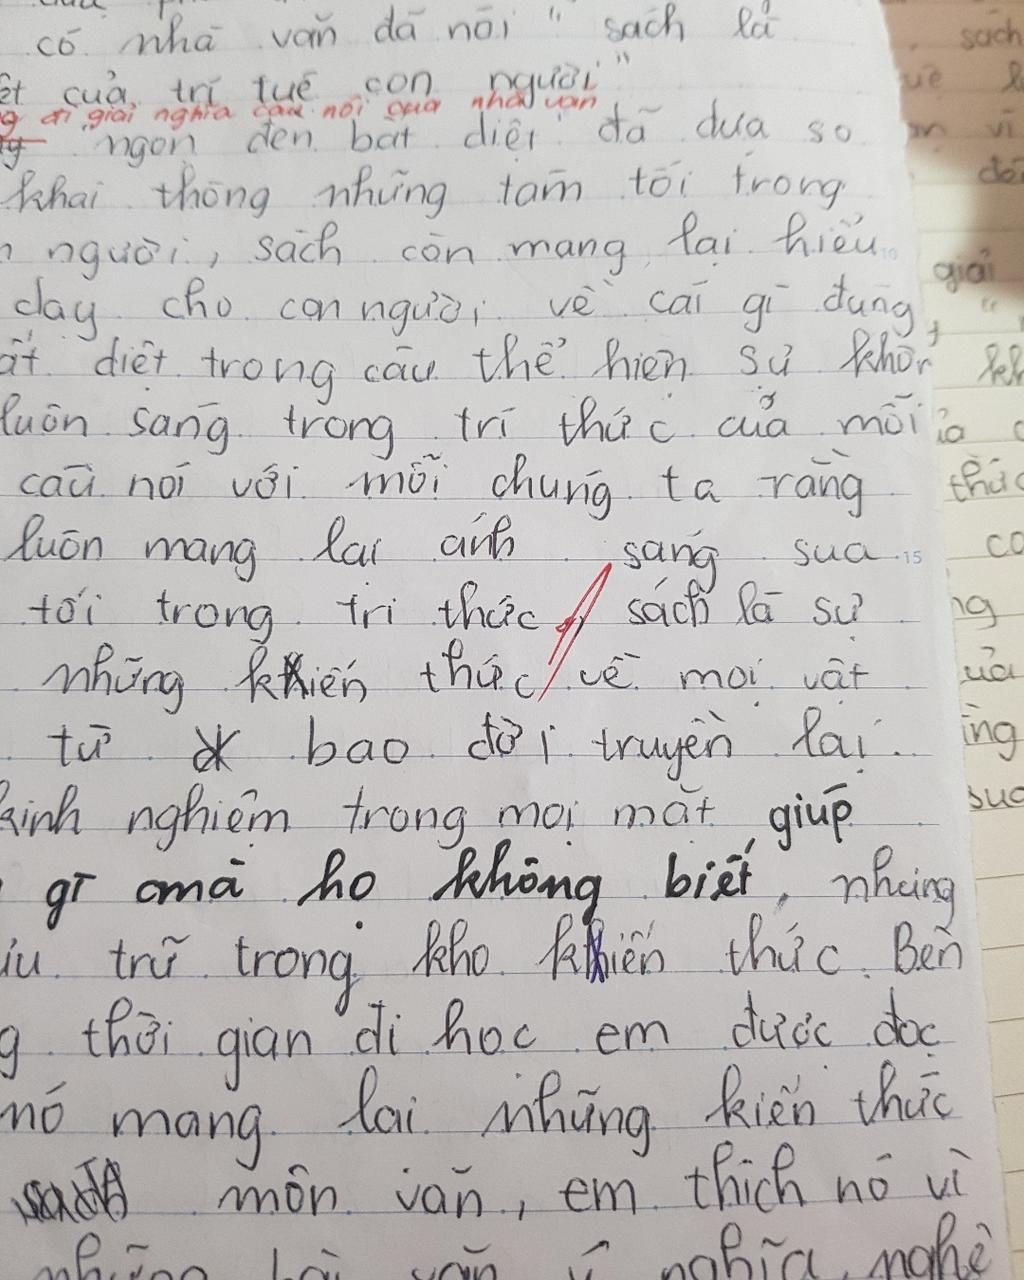 có nhà văn đã nói " sách là
sách
ết của trí tuệ con người"
đi giải nghĩa câu nói của nhà văn
ngọn đèn bất diệt đã đưa so
khai thông những tăm tối trong
người, sách còn mang lại hiểu
giải
dạy cho con người về cái gì đúng,
ất diệt trong câu thể hiện sự khôn
luôn sáng trong trí thức của mỗi
câu nói với mỗi chúng ta rằng
thức
luôn mang lại ánh sáng sua
15
tối trong tri thức, sách là sự
những kiến thức về mọi vật
của
từ bao đời truyền lại.
kinh nghiệm trong mọi mặt, giúp
gì cmà họ không biết, nhưng
trữ trong kho kiến thức. Bên
g thời gian đi học em được đọc
nó mang lại những kiến thức
môn văn, em thích nó vì
những bài văn ý nghĩa, nghệ